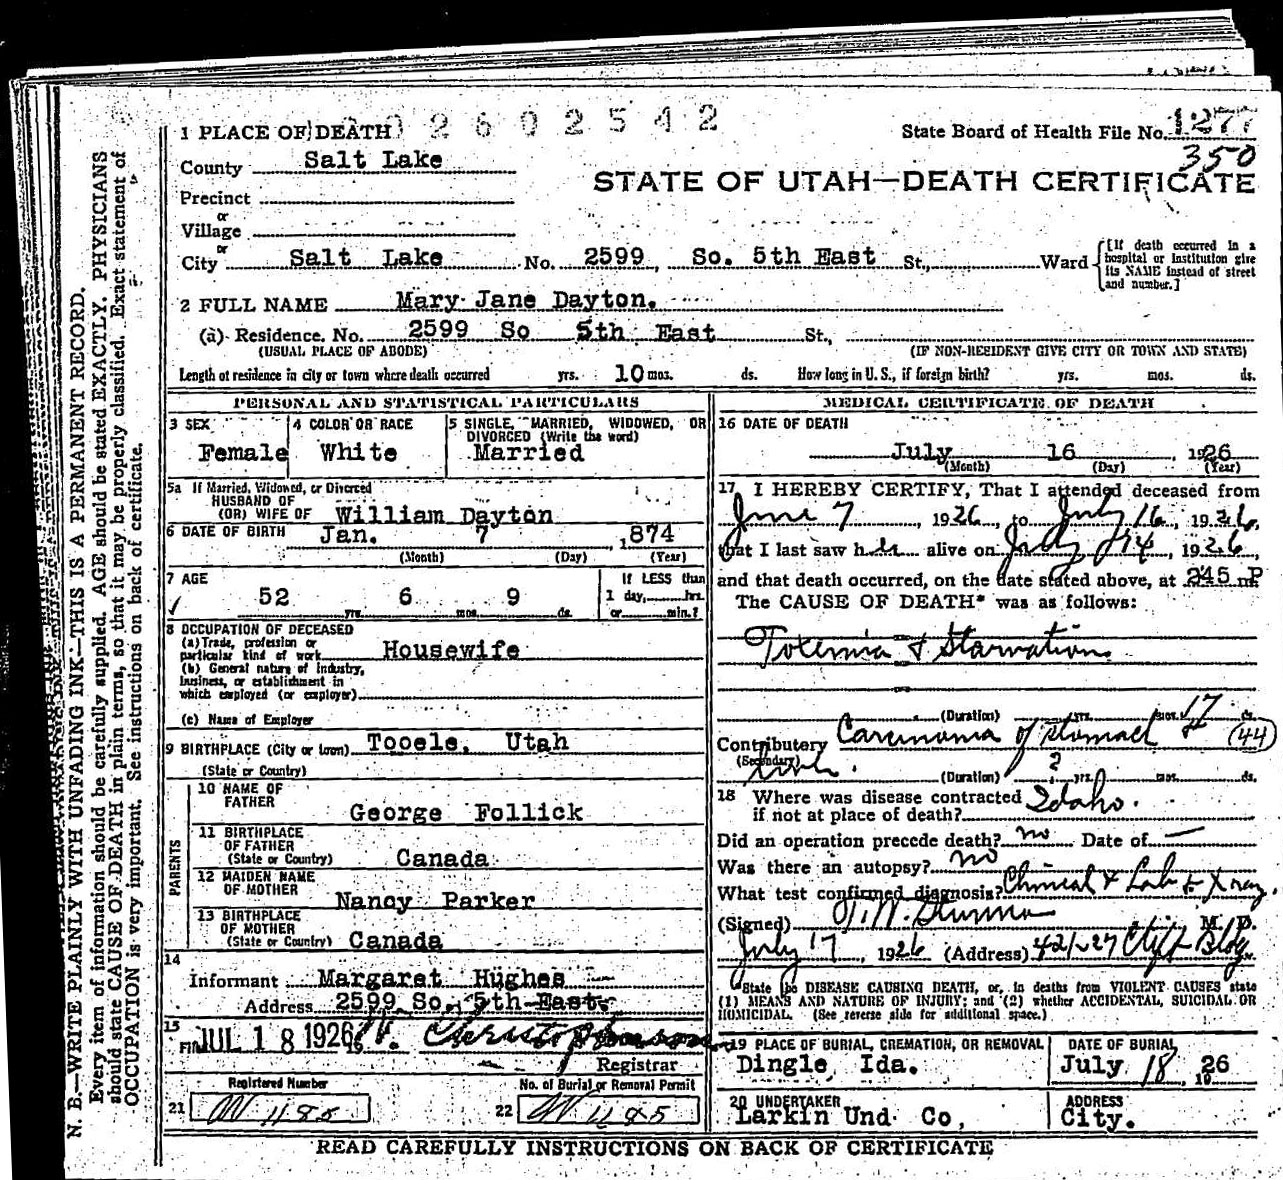 2602542
1 PLACE OF DEATH
State Board of Health File No. 1277
350
County Salt Lake
STATE OF UTAH—DEATH CERTIFICATE
Precinct
or
Village
or
City Salt Lake No. 2599 So. 5th East St., Ward
[If death occurred in a hospital or institution give its NAME instead of street and number.]
2 FULL NAME Mary Jane Dayton.
(a) Residence, No. 2599 So 5th East St.,
(USUAL PLACE OF ABODE) (IF NON-RESIDENT GIVE CITY OR TOWN AND STATE)
Length of residence in city or town where death occurred yrs. 10 mos. ds. How long in U. S., if foreign birth? yrs. mos. ds.
PERSONAL AND STATISTICAL PARTICULARS
3 SEX Female
4 COLOR OR RACE White
5 SINGLE, MARRIED, WIDOWED, OR DIVORCED (Write the word)
Married
5a If Married, Widowed, or Divorced
HUSBAND OF
(OR) WIFE OF William Dayton
6 DATE OF BIRTH Jan. 7 1874
(Month) (Day) (Year)
7 AGE
52 yrs. 6 mos. 9 ds.
If LESS than
1 day, hrs.
or min.?
8 OCCUPATION OF DECEASED
(a) Trade, profession or
particular kind of work Housewife
(b) General nature of industry,
business, or establishment in
which employed (or employer)
(c) Name of Employer
9 BIRTHPLACE (City or town) Tooele, Utah
(State or Country)
PARENTS
10 NAME OF
FATHER George Follick
11 BIRTHPLACE
OF FATHER
(State or Country) Canada
12 MAIDEN NAME
OF MOTHER Nancy Parker
13 BIRTHPLACE
OF MOTHER
(State or Country) Canada
14
Informant Margaret Hughes
Address 2599 So. 5th East.
15
JUL 18 1926
Registrar
Registered Number
21
No. of Burial or Removal Permit
22
MEDICAL CERTIFICATE OF DEATH
16 DATE OF DEATH
July 16, 1926
(Month) (Day) (Year)
17 I HEREBY CERTIFY, That I attended deceased from
June 7, 1926, to July 16, 1926,
that I last saw her alive on July 14, 1926
and that death occurred, on the date stated above, at 245 m P
The CAUSE OF DEATH* was as follows:
Toxemia & Starvation
(Duration) yrs. mos. 17 ds.
Contributory Carcinoma of Stomach (44)
(Secondary)
(Duration) ? yrs. mos. ds.
18 Where was disease contracted
if not at place of death? Idaho.
Did an operation precede death? no Date of —
Was there an autopsy? no
What test confirmed diagnosis? Clinical & Lab & Xray.
(Signed) M. D.
July 17, 1926 (Address) 421-27 Clift Bldg.
*State the DISEASE CAUSING DEATH, or, in deaths from VIOLENT CAUSES state
(1) MEANS AND NATURE OF INJURY; and (2) whether ACCIDENTAL, SUICIDAL OR
HOMICIDAL. (See reverse side for additional space.)
19 PLACE OF BURIAL, CREMATION, OR REMOVAL
Dingle Ida.
DATE OF BURIAL
July 18, 1926
20 UNDERTAKER
Larkin Und Co,
ADDRESS
City.
READ CAREFULLY INSTRUCTIONS ON BACK OF CERTIFICATE
N. B.—WRITE PLAINLY WITH UNFADING INK—THIS IS A PERMANENT RECORD.
Every item of information should be carefully supplied. AGE should be stated EXACTLY. PHYSICIANS
should state CAUSE OF DEATH in plain terms, so that it may be properly classified. Exact statement of
OCCUPATION is very important. See instructions on back of certificate.